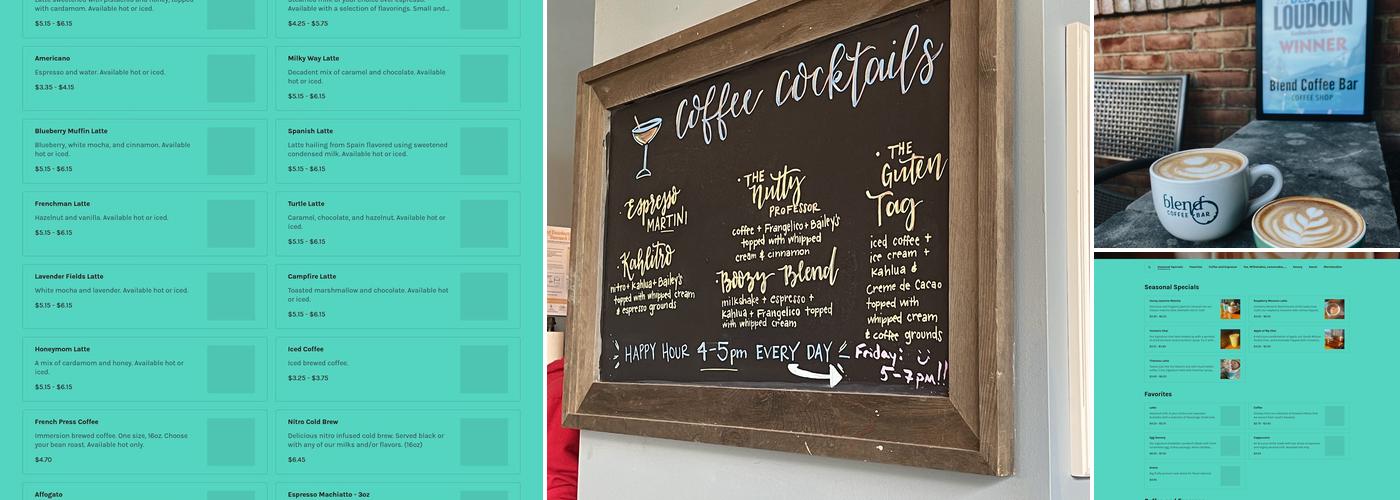 with cardamom. Available hot or iced.
$5.15 - $6.15
Available with a selection of flavorings. Small and...
$4.25 - $5.75
Americano
Espresso and water. Available hot or iced.
$3.35 - $4.15
Milky Way Latte
Decadent mix of caramel and chocolate. Available hot
or iced.
$5.15 - $6.15
Blueberry Muffin Latte
Blueberry, white mocha, and cinnamon. Available
hot or iced.
$5.15 - $6.15
Spanish Latte
Latte hailing from Spain flavored using sweetened
condensed milk. Available hot or iced.
$5.15 - $6.15
Frenchman Latte
Hazelnut and vanilla. Available hot or iced.
$5.15 - $6.15
Turtle Latte
Caramel, chocolate, and hazelnut. Available hot or
iced.
$5.15 - $6.15
Lavender Fields Latte
White mocha and lavender. Available hot or iced.
$5.15 - $6.15
Campfire Latte
Toasted marshmallow and chocolate. Available hot
or iced.
$5.15 - $6.15
Honeymoon Latte
A mix of cardamom and honey. Available hot or
iced.
$5.15 - $6.15
Iced Coffee
Iced brewed coffee.
$3.25 - $3.75
French Press Coffee
Immersion brewed coffee. One size, 16oz. Choose
your bean roast. Available hot only.
$4.70
Nitro Cold Brew
Delicious nitro infused cold brew. Served black or
with any of our milks and/or flavors. (16oz)
$6.45
Affogato
Espresso Machiatto - 3oz
coffee cocktails
• Espresso
MARTINI
• Kahlitro
nitro + Kahlua + Bailey's
topped with whipped cream
& espresso grounds
• THE
Nutty
PROFESSOR
coffee + Frangelico + Bailey's
topped with whipped
cream & cinnamon
• Boozy Blend
milkshake + espresso +
Kahlua + Frangelico topped
with whipped cream
• THE
Guten
Tag
iced coffee +
ice cream +
Kahlua &
Creme de Cacao
topped with
whipped cream
& coffee grounds
HAPPY HOUR 4-5pm EVERY DAY
Friday!
5-7pm!!
LOUDOUN
WINNER
Blend Coffee Bar
COFFEE SHOP
blend
COFFEE BAR
Seasonal Specials
Favorites